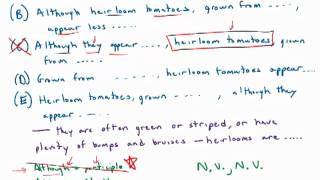 (B) Although heirloom tomatoes, grown from ----,
appear less ....
(C) Although they appear ...., heirloom tomatoes, grown
from ....
(D) Grown from ....., heirloom tomatoes appear...
(E) Heirloom tomatoes, grown ....., although they
appear ....
— they are often green or striped, or have
plenty of bumps and bruises — heirlooms are .....
Although + participle
N.V., N.V.